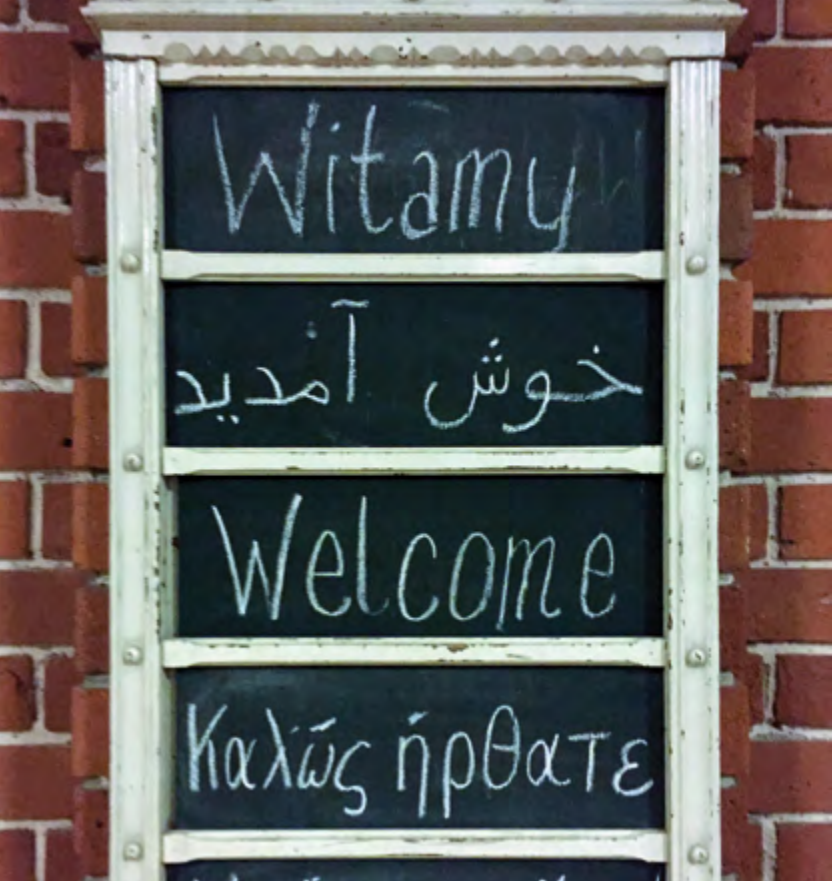 Witamy
خوش آمدید
Welcome
Καλώς ήρθατε